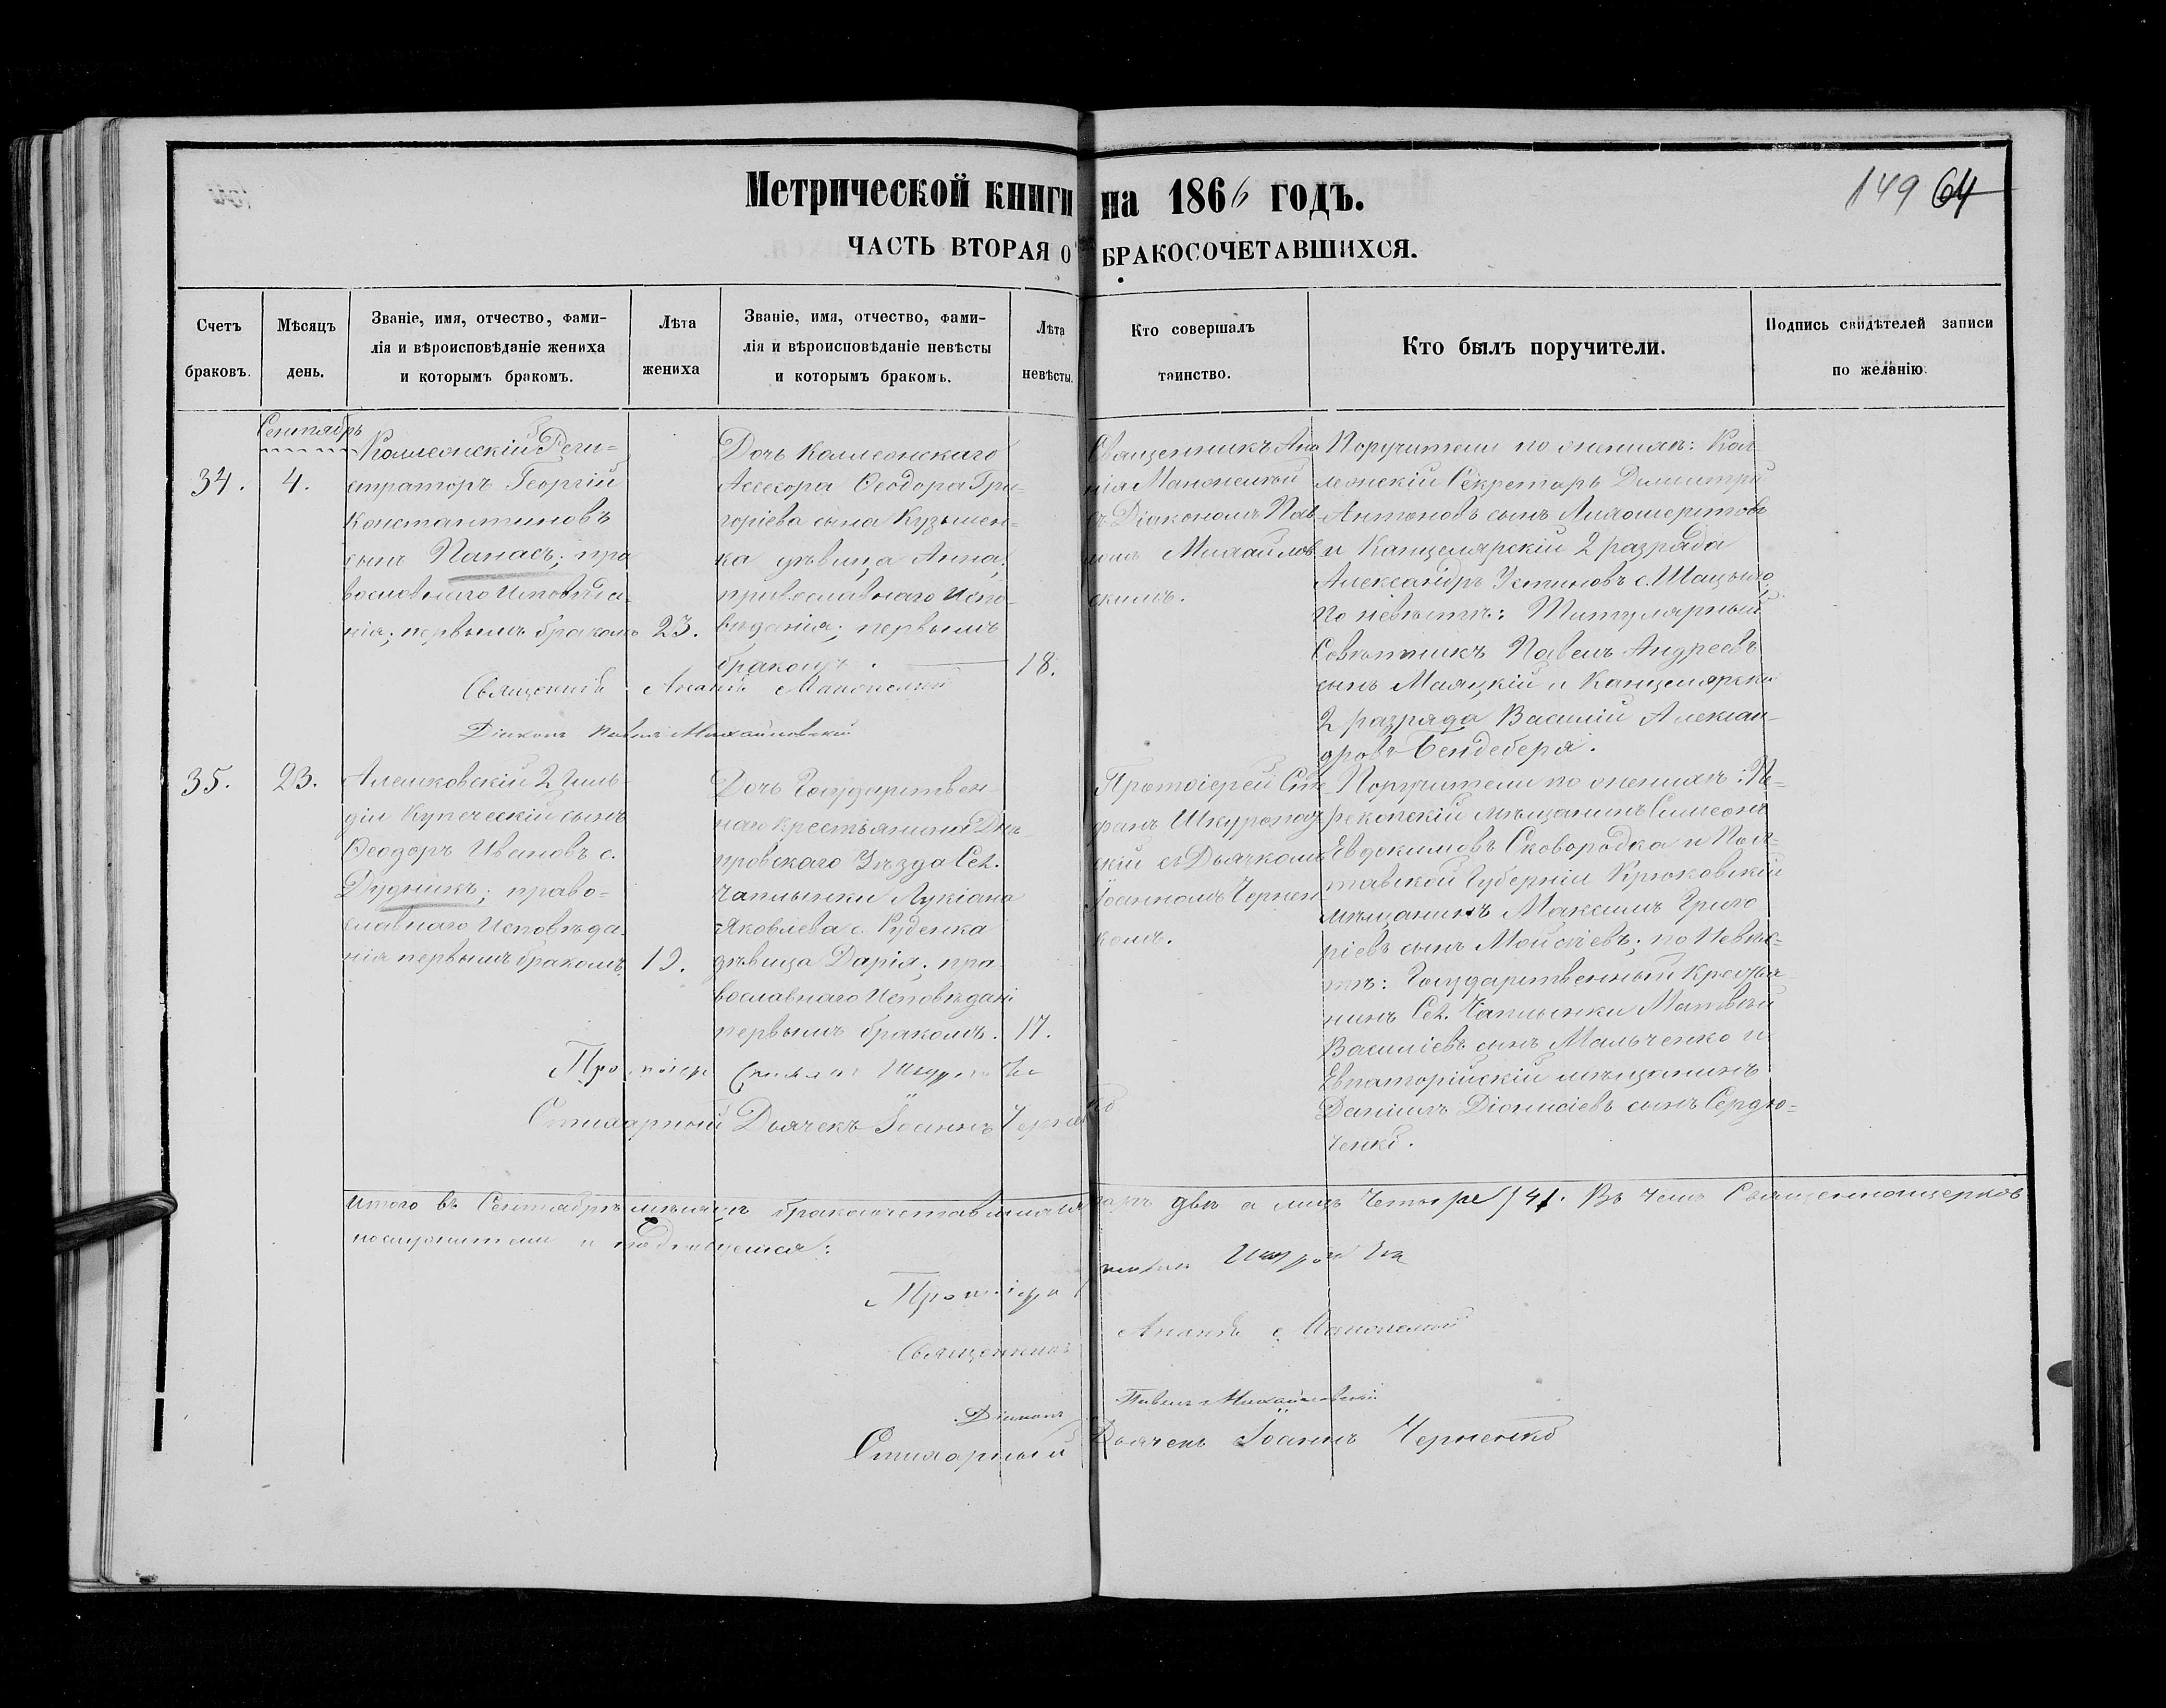 Метрической книги на 1866 годъ.
149 64
ЧАСТЬ ВТОРАЯ О БРАКОСОЧЕТАВШИХСЯ.
Счетъ
браковъ.
Мѣсяцъ
день.
Званіе, имя, отчество, фами-
лія и вѣроисповѣданіе жениха
и которымъ бракомъ.
Лѣта
жениха
Званіе, имя, отчество, фами-
лія и вѣроисповѣданіе невѣсты
и которымъ бракомъ.
Лѣта
невѣсты.
Кто совершалъ
таинство.
Кто былъ поручители.
Подпись свидѣтелей записи
по желанію.
Сентябрь
34.
4.
Коллежскій Реги-
страторъ Георгій
Константиновъ
сынъ Панасъ; пра
вославнаго Исповѣда-
нія; первымъ бракомъ
23.
Дочь Коллежскаго
Асессора Ѳеодора Гри-
горіева сына Кузьмен-
ка дѣвица Анна;
православнаго Испо-
вѣданія; первымъ
бракомъ.
18.
Священникъ Ана
нія
съ Діакономъ Пав-
ломъ Михайлов
скимъ.
Поручители по женихѣ: Кол-
лежскій Секретарь Димитрій
Антоновъ сынъ
и Канцелярскій 2 разряда
Александръ Устиновъ с.
По невѣстѣ: Титулярный
Совѣтникъ Павелъ Андреевъ
сынъ Маяцкій и Канцелярскій
2 разряда Василій Алексан-
дровъ Бендебера.
Священникъ Ананія
Діаконъ Павелъ Михайловскій
35.
23.
Алешковскій 2 Гиль-
діи Купеческій сынъ
Ѳеодоръ Ивановъ с.
Дудникъ; право-
славнаго Исповѣда-
нія первымъ бракомъ.
19.
Дочь Государствен-
наго крестьянина Днѣ-
провскаго Уѣзда Сел.
Чаплынки Лукіана
Яковлева с. Руденка
дѣвица Дарія; пра-
вославнаго Исповѣдані
первымъ бракомъ.
17.
Протоіерей Сте
фанъ
скій съ Дьячкомъ
Іоанномъ Чернен
комъ.
Поручители по женихѣ: Пе-
рекопскій мѣщанинъ Симеонъ
Евдокимовъ Сковородка и Пол-
тавской Губерніи Крюковскій
мѣщанинъ Максимъ Григо
ріевъ сынъ Мойсіевъ; по Невѣс-
тѣ: Государственный крестья-
нинъ Сел. Чаплынки Матвѣй
Василіевъ сынъ Мальченко и
Евпаторійскій мѣщанинъ
Даніилъ Діонисіевъ сынъ Сердю-
ченко.
Протоіерей Стефанъ
Стихарный Дьячекъ Іоаннъ Черненко
Итого въ Сентябрѣ мѣсяцѣ бракосочетавшихся паръ двѣ а лицъ Четыре /4/. Въ чемъ Священноцерков
нослужители и подписуемся:
Протоіерей Стефанъ
Священникъ Ананія
Діаконъ Павелъ Михайловскій
Стихарный Дьячекъ Іоаннъ Черненко